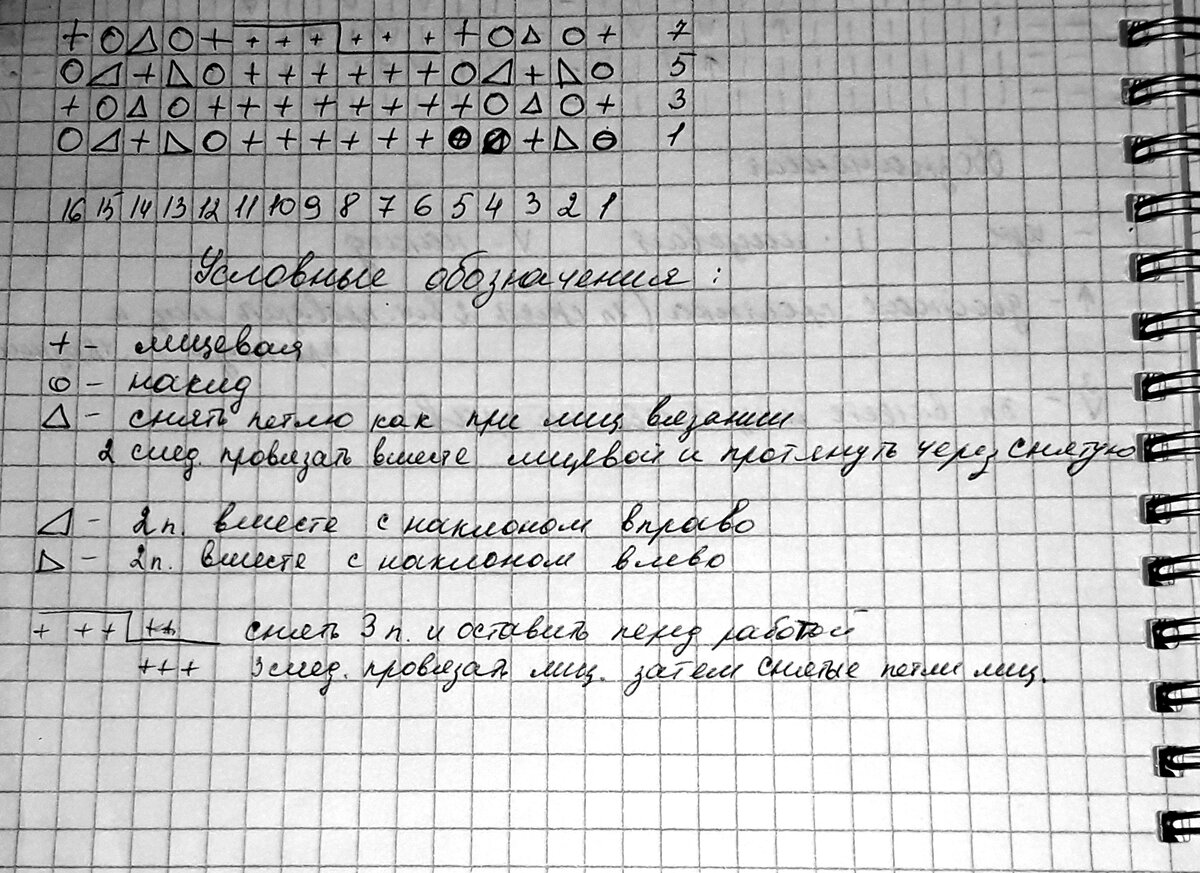 + O △ O + + + + + + + + O △ O + 7
O ◿ + ◺ O + + + + + + O ◿ + ◺ O 5
+ O △ O + + + + + + + + O △ O + 3
O ◿ + ◺ O + + + + + + O ◿ + ◺ O 1
16 15 14 13 12 11 10 9 8 7 6 5 4 3 2 1
Условные обозначения:
+ - лицевая
о - накид
△ - снять петлю как при лиц вязании
2 след. провязать вместе лицевой и протянуть через снятую
◿ - 2п. вместе с наклоном вправо
◺ - 2п. вместе с наклоном влево
+ + + ++ снять 3 п. и оставить перед работой
+++ 3 след. провязать лиц. затем снятые петли лиц.